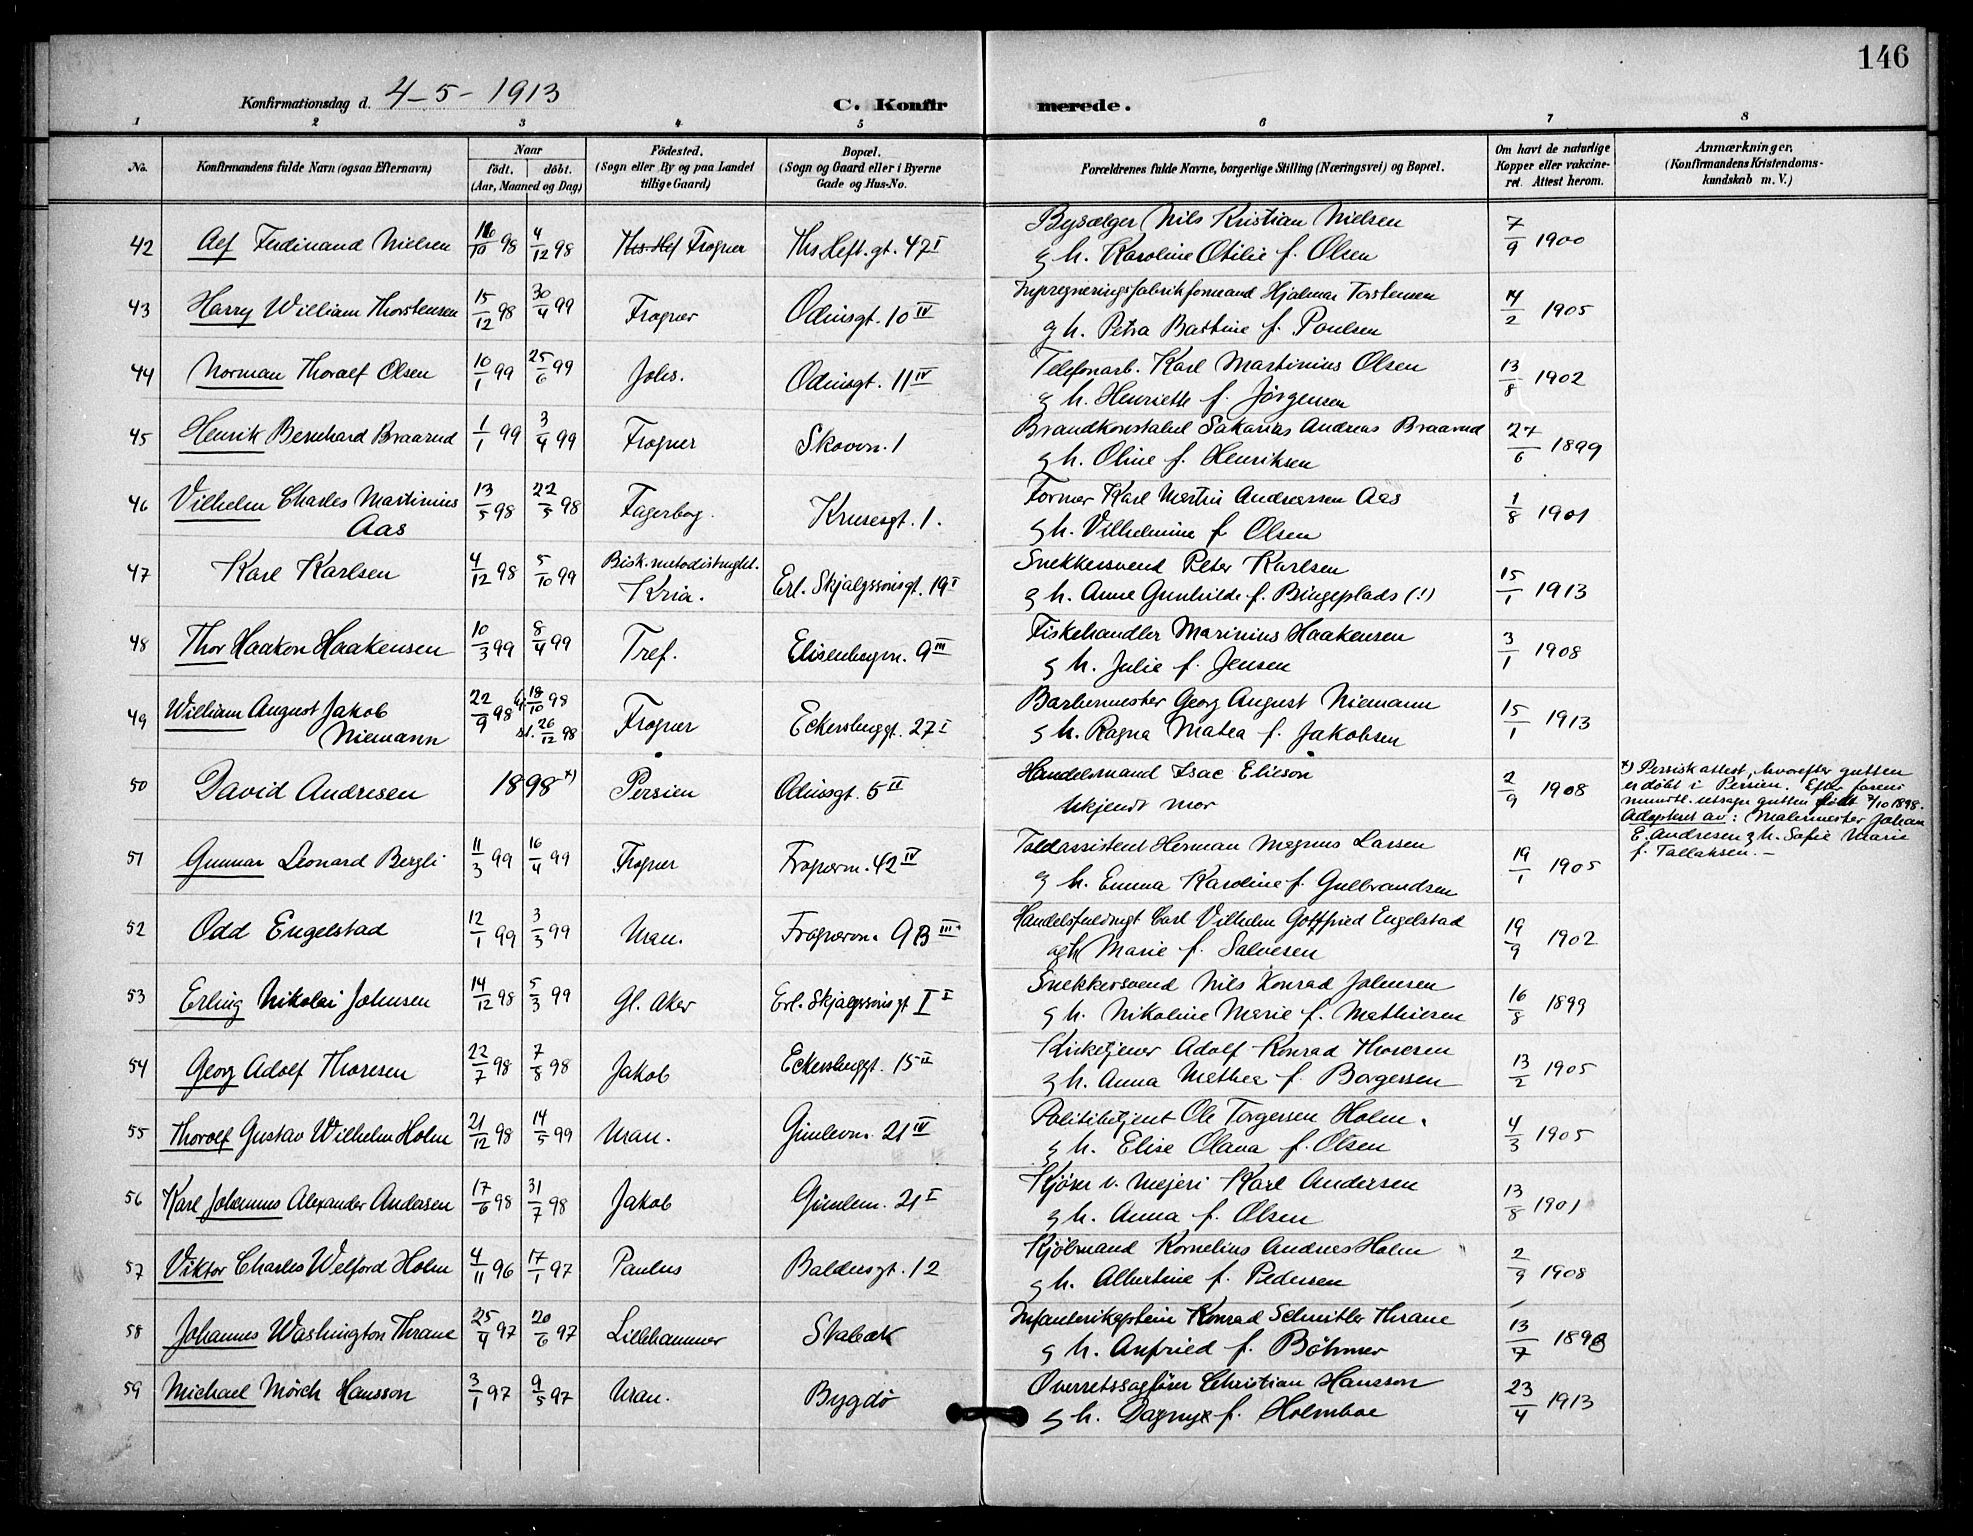 146
Konfirmationsdag d. 4-5-1913
C. Konfirmerede.
1 2 3 4 5 6 7 8
No. Konfirmandens fulde Navn (ogsaa Efternavn) Naar født. døbt. (Aar, Maaned og Dag) Fødested. (Sogn eller By og paa Landet tillige Gaard) Bopæl. (Sogn og Gaard eller i Byerne Gade og Hus-No.) Forældrenes fulde Navne, borgerlige Stilling (Næringsvei) og Bopæl. Om havt de naturlige Kopper eller vakcineret. Attest herom. Anmærkninger. (Konfirmandens Kristendomskundskab m. V.)
42 Alf Ferdinand Nielsen 16/10 98 4/12 98 Frogner Ths. Heft. gt. 47 I Bysælger Nils Kristian Nielsen 7/9 1900
g h. Karoline Otilie f. Olsen
43 Harry William Thorstensen 15/12 98 30/4 99 Frogner Odinsgt. 10 IV Impregneringsfabrikformand Hjalmar Torstensen 14/2 1905
g h. Petra Bastine f. Poulsen
44 Norman Thoralf Olsen 10/1 99 25/6 99 Johs. Odinsgt. 11 IV Telefonarb. Karl Martinius Olsen 13/8 1902
g h. Henriette f. Jørgensen
45 Henrik Bernhard Braarud 1/1 99 3/4 99 Frogner Skovvn. 1 Brandkonstabel Sakarias Andreas Braarud 27/6 1899
g h. Oline f. Henriksen
46 Vilhelm Charles Martinius 13/5 98 22/5 98 Fagerborg. Krusesgt. 1. Former Karl Martin Andreassen Aas 1/8 1901
Aas g h. Vilhelmine f Olsen
47 Karl Karlsen 4/12 98 5/10 99 Bisk. metodistmght. Kria. Erl. Skjalgssønsgt. 19 I Snekkersvend Peter Karlsen 15/1 1913
g h. Anne Gunhilde f. Bingeplads (!)
48 Thor Haakon Haakensen 10/3 99 8/4 99 Tref. Elisenbergvn. 9 III Fiskehandler Marinius Haakensen 3/1 1908
g h. Julie f. Jensen
49 William August Jakob 22/9 98 18/10 98 Frogner Eckersberggt. 27 I Barbermester Georg August Niemann 15/1 1913
Niemann st. 26/12 98 g h. Ragna Matea f. Jakobsen
50 David Andresen 1898 x) Persien Odinsgt. 5 II Handelsmand Isac Elieson 2/9 1908
Ukjendt mor
x) Persisk attest, hvorefter gutten
er døbt i Persien. Efter farens
mundtl. utsagn gutten født 7/10 1898.
Adoptert av: Malermester Johan
E. Andresen g h. Sofie Marie
f. Tallaksen. –
51 Gunnar Leonard Bergli 11/3 99 16/4 99 Frogner Frognervn. 42 IV Toldassistent Herman Magnus Larsen 19/1 1905
g h. Emma Karoline f. Gulbrandsen
52 Odd Engelstad 12/1 99 3/3 99 Uran. Frognervn. 9B III Handelsfuldmgt Carl Vilhelm Gottfried Engelstad 19/9 1902
og h Marie f. Salvesen
53 Erling Nikolai Johnsen 14/12 98 5/3 99 Gl. Aker Erl. Skjalgssønsgt I I Snekkersvend Nils Konrad Johnsen 16/8 1899
g h. Nikoline Marie f. Mathiesen
54 Georg Adolf Thoresen 22/7 98 7/8 98 Jakob Eckersberggt. 15 II Kirketjener Adolf Konrad Thoresen 13/2 1905
g h. Anna Mathea f. Borgersen
55 Thoralf Gustav Wilhelm Holm 21/12 98 14/5 99 Uran. Gimlevn. 21 IV Politibetjent Ole Torgersen Holm. 4/3 1905
g h. Elise Olava f. Olsen
56 Karl Johannes Alexander Andersen 17/6 98 31/7 98 Jakob Gimlevn. 21 I Kjører v. Mejeri Karl Andersen 13/8 1901
g h. Anna f. Olsen
57 Viktor Charles Welford Holm 4/11 96 17/1 97 Paulus Baldersgt. 12 Kjøbmand Kornelius Andreas Holm 2/9 1908
g h. Albertine f. Pedersen
58 Johannes Washington Thrane 25/4 97 20/6 97 Lillehammer Stabæk Infanterikaptein Konrad Schnitler Thrane 13/7 1898
g h. Anfried f. Bøhmer
59 Michael Mörch Hansson 3/1 97 9/5 97 Uran. Bygdø Overretssagfører Christian Hansson 23/4 1913
g h. Dagny f. Holmboe